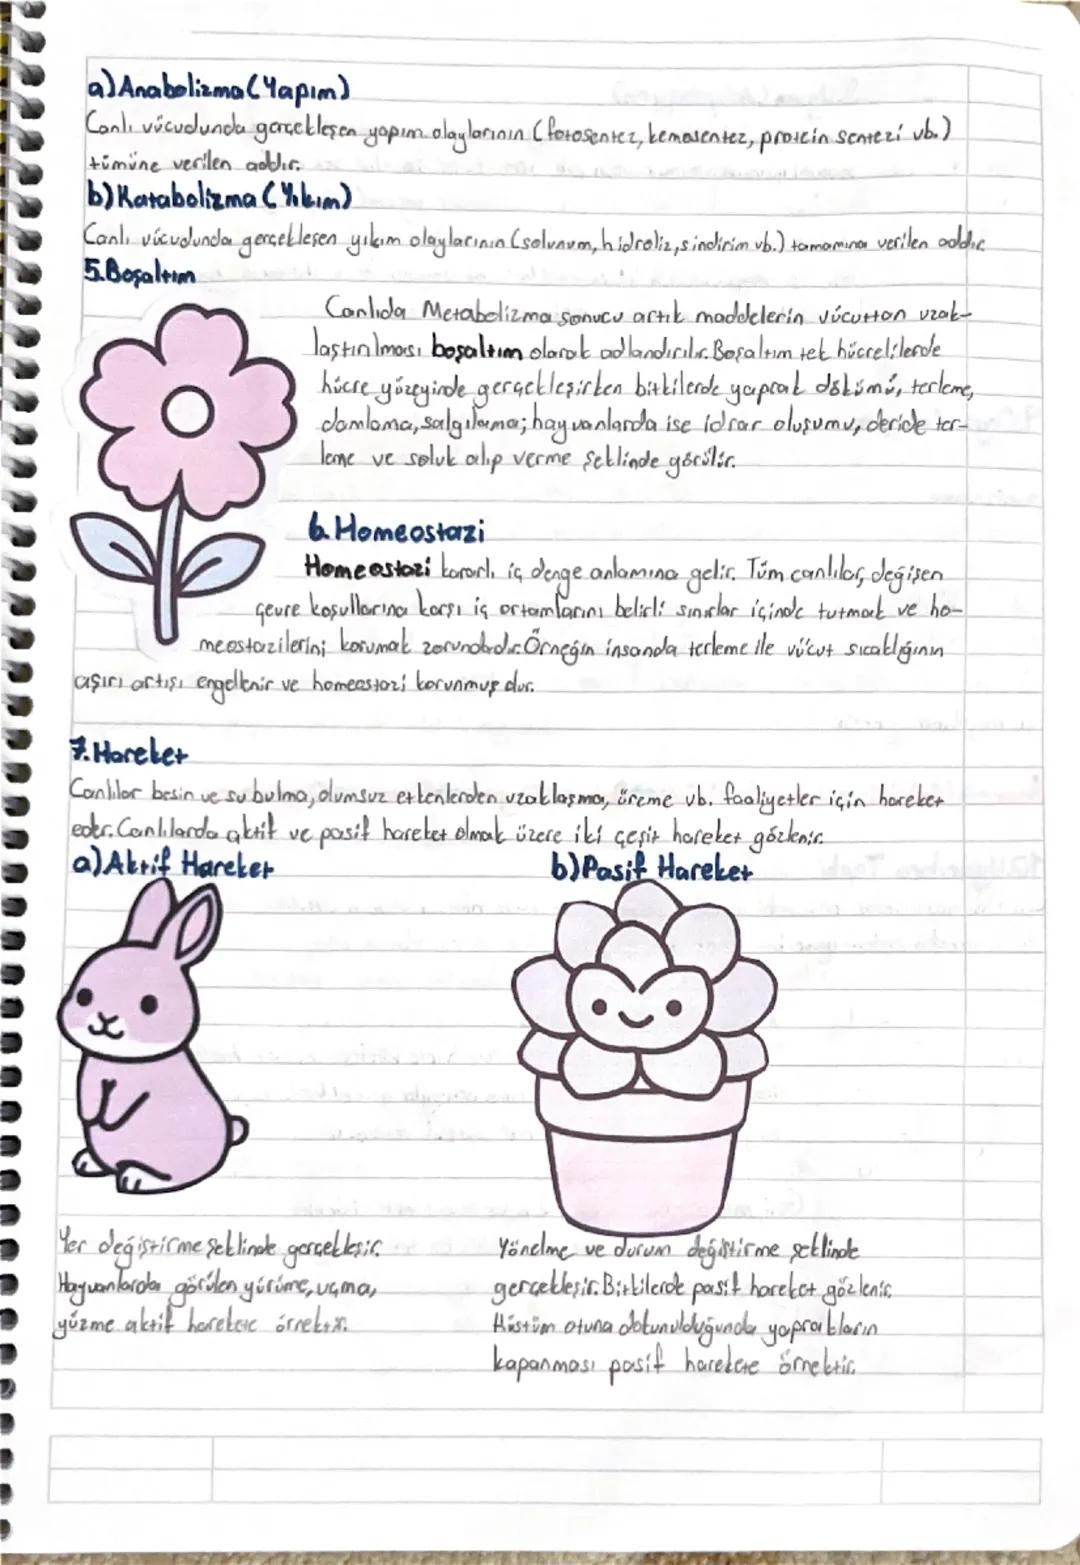 a) Anabolizma (Yapım)
Canlı vücudunda gerçekleşen yapım olaylarının (fotosentez, kemosentez, protein sentezi vb.)
tümüne verilen addır.
b) Katabolizma (Yıkım)
Canlı vücudunda gerçekleşen yıkım olaylarının (solunum, hidroliz, sindirim vb.) tamamına verilen addır.
5. Boşaltım
Canlıda Metabolizma sonucu artık maddelerin vücuttan uzak-
laştırılması boşaltım olarak adlandırılır. Boşaltım tek hücrelilerde
hücre yüzeyinde gerçekleşirken bitkilerde yaprak dökümü, terleme,
damlama, salgılama; hayvanlarda ise idrar oluşumu, deride ter-
leme ve soluk alıp verme şeklinde görülür.
6. Homeostazi
Homeostazi kararlı iç denge anlamına gelir. Tüm canlılar, değişen
çevre koşullarına karşı iç ortamlarını belirli sınırlar içinde tutmak ve ho-
meostazilerini korumak zorundadır. Örneğin insanda terleme ile vücut sıcaklığının
aşırı artışı engellenir ve homeostazi korunmuş olur.
7. Hareket
Canlılar besin ve su bulma, olumsuz etkenlerden uzaklaşma, üreme vb. faaliyetler için hareket
eder. Canlılarda aktif ve pasif hareket olmak üzere iki çeşit hareket gözlenir.
a) Aktif Hareket
b) Pasif Hareket
Yer değiştirme şeklinde gerçekleşir.
Hayvanlarda görülen yürüme, uçma,
yüzme aktif harekete örnektir.
Yönelme ve durum değiştirme şeklinde
gerçekleşir. Bitkilerde pasif hareket gözlenir.
Küstüm otuna dokunulduğunda yaprakların
kapanması pasif harekete örnektir.